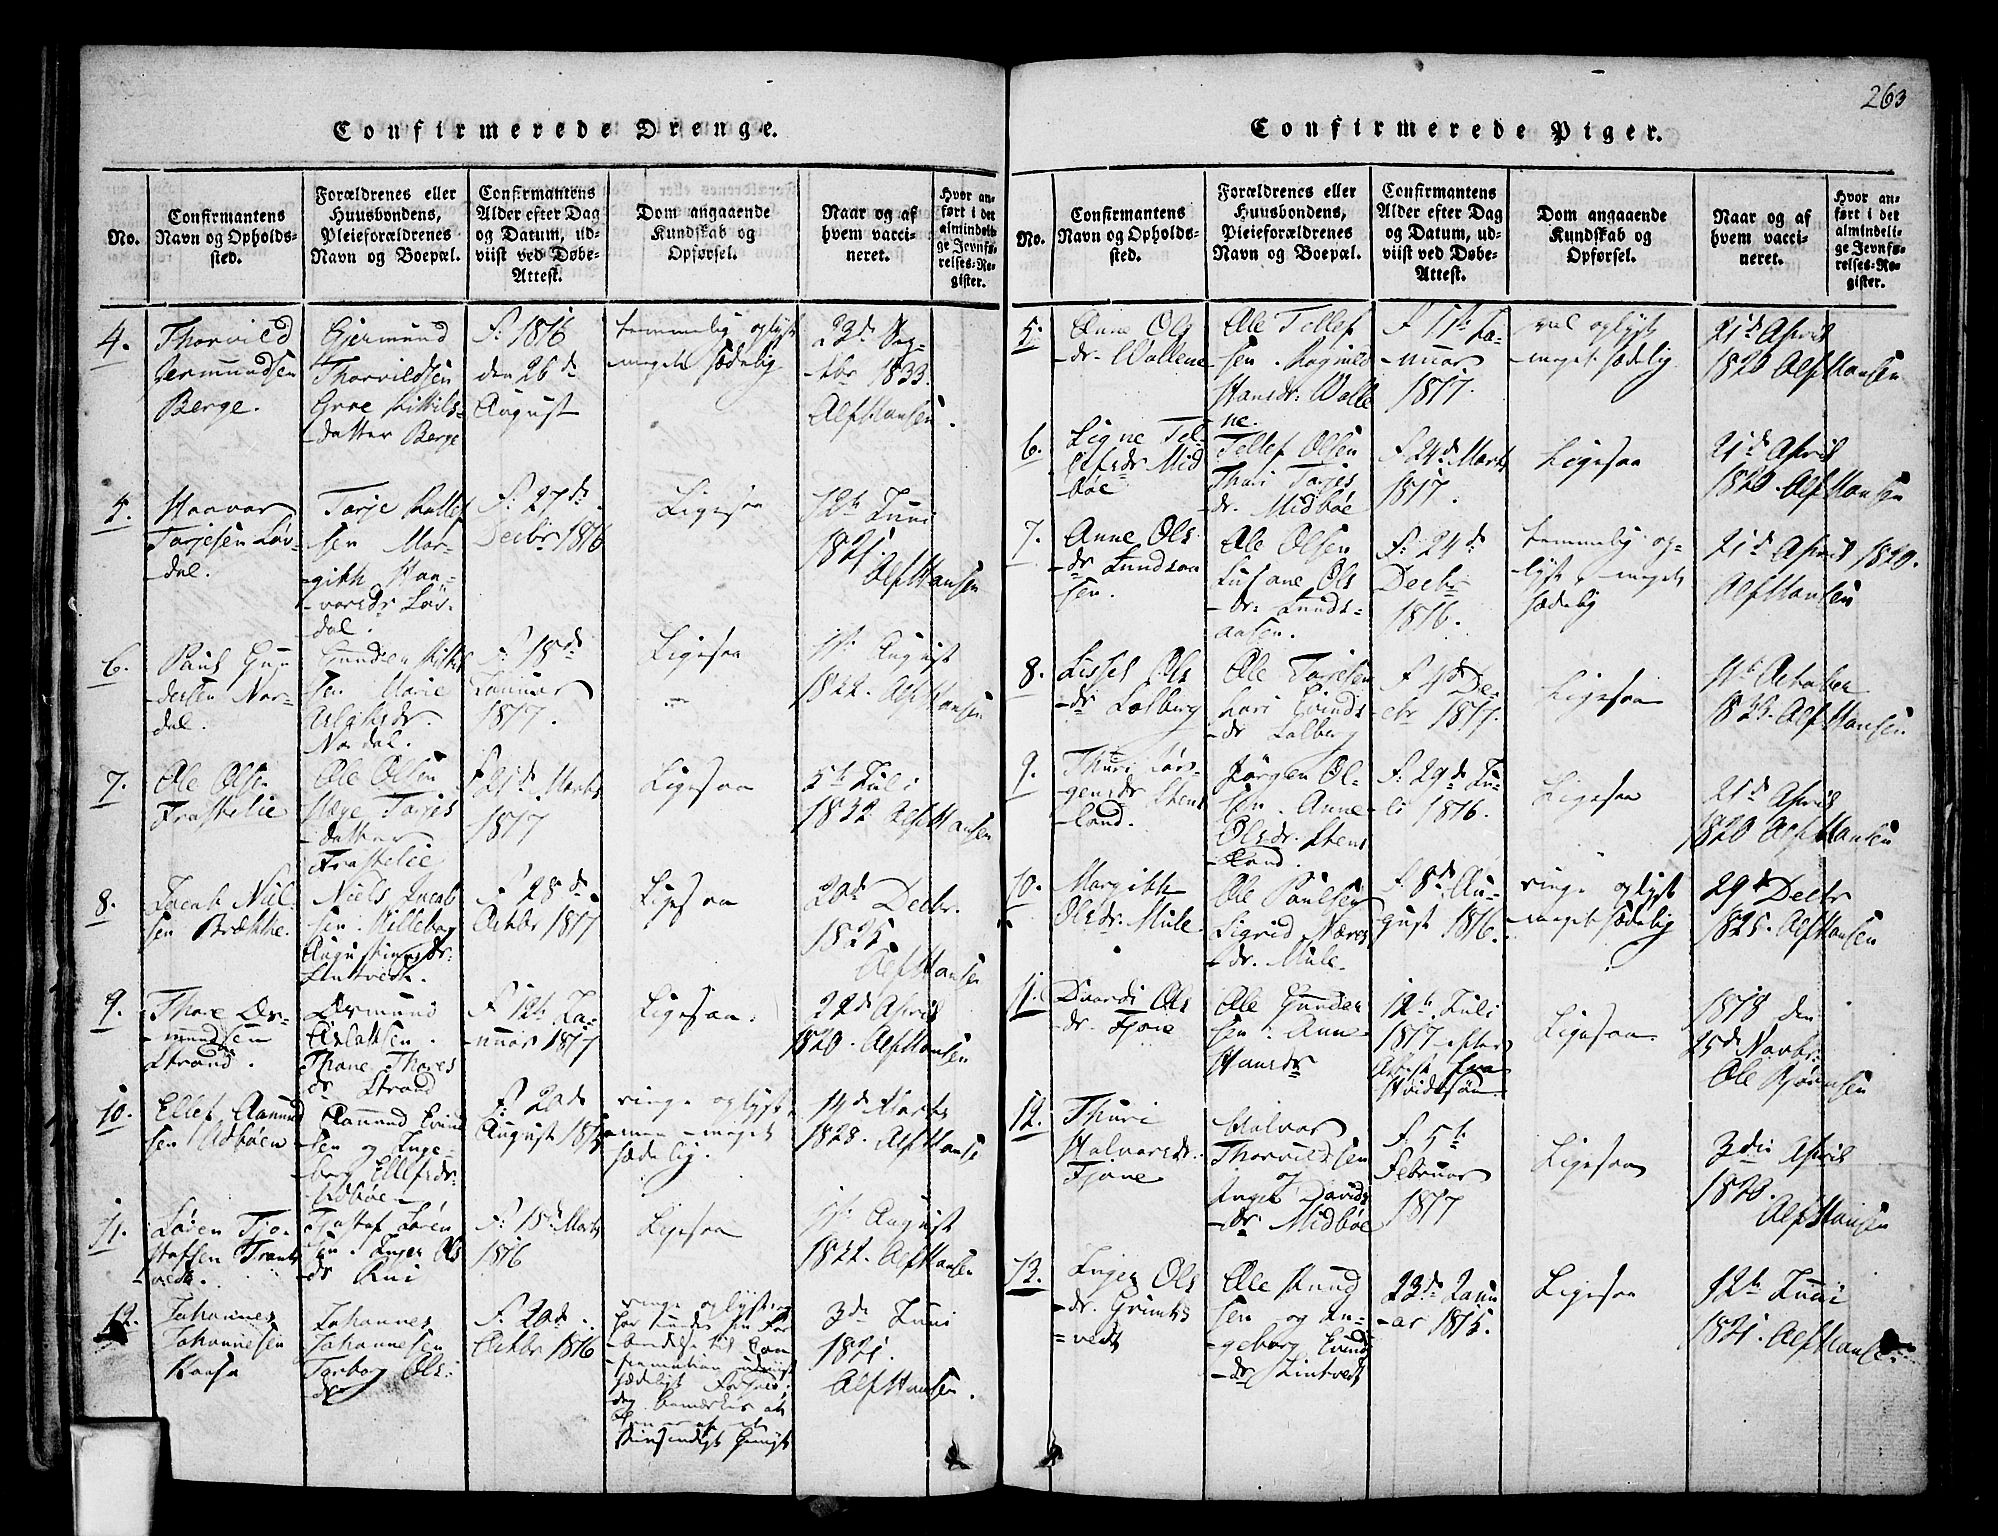 263
Confirmerede Drenge.
No.
Confirmantens
Navn og Opholds-
sted.
Forældrenes eller
Huusbondens,
Pleieforældrenes
Navn og Boepæl.
Confirmantens
Alder efter Dag
og Datum, ud-
viist ved Døbe-
Attest.
Dom angaaende
Kundskab og
Opførsel.
Naar og af
hvem vacci-
neret.
Hvor an-
ført i det
almindeli-
ge Jevnfø-
relses-Re-
gister.
4.
Thorvild
Jermundsen
Berge.
Gjermund
Thorvildsen
Groe Kittils-
datter Berge
F. 1816
den 26de
August
temmelig oplyst
meget sædelig
23de Sep-
tbr 1833.
Alf Hansen.
5.
Haavar
Tarjesen Løv-
dal.
Tarje
sen Mar-
-gith Haa-
-vorsdr Løv-
dal.
F. 27de
Decbr 1816
Ligesaa
12te Juni
1821
Alf Hansen
6.
Paul Gun
dersen Nor-
dal.
sen Marie
Aslaksdr.
Nordal.
F. 18de
Januar
1817.
Ligesaa
11te August
1822. Alf Hansen
7.
Ole Olsen
Frastelie
Ole Olsen
Hæge Tarjes
-datter
Frastelie
F. 21de Marts
1817
Ligesaa
5te Juli
1832 Alf Hansen
8.
Jacob Niel-
sen Brække.
Niels Jacob
sen. Villeborg
Augustinusdr.
Lintvedt.
F. 28de
Octbr 1817
Ligesaa
20de Decbr.
1825
Alf Hansen
9.
Thore Os-
-mundsen
Strand.
Osmund
Aslaksen.
Thone Thores
dr Strand
F. 12te Ja-
-nuar 1817
Ligesaa.
22de April
1820. Alf Hansen
10.
Ellef Aamund
sen Udbøen
Aamund Evind
sen og Inge-
borg Ellefsdr.
Udbøe
F. 20de
August
ringe oplyst,
men meget
sædelig.
14de Marts
1828. Alf Hansen
11.
Søren Tjo-
stolfsen Trant
vedt.
Tjostof Søren
sen. Inger Ols
dr Rui
F. 15de Marts
1816
Ligesaa
11te August
1822. Alf Hansen
12.
Johannes
Johannesen
Haasa
Johannes
Johannesen
Torborg Ols-
dr
F. 20de
Octbr 1816
ringe oplyst, og
har under sin For
beredelse til Con
firmation udviist
sædeligt Forhold;
dog bemærkes at
han er af et
Svirsindigt Gemyt
3die Juni
1821.
Alf Hansen.
Confirmerede Piger.
No.
Confirmantens
Navn og Opholds-
sted.
Forældrenes eller
Huusbondens,
Pleieforældrenes
Navn og Boepæl.
Confirmantens
Alder efter Dag
og Datum, ud-
viist ved Døbe-
Attest.
Dom angaaende
Kundskab og
Opførsel.
Naar og af
hvem vacci-
neret.
Hvor an-
ført i det
almindeli-
ge Jevnfø-
relses-Re-
gister.
5.
Anne Ols
dr. Wallene
Ole Tellef
sen. Ragnild
Hansdr. Walle
ne.
F. 11te Ja-
-nuar
1817.
vel oplyst
meget sædelig
21de April
1820 Alf Hansen
6.
Signe Tel-
lefsdr. Mid
bøe
Tellef Olsen
Thuri Tarjes
dr. Midbøe
F. 24de Marts
1817.
Ligesaa
21de April
1820. Alf Hansen
7.
Anne Ols
-dr Lundsaa
sen.
Ole Olsen
Susane Ols
-dr. Lunds-
aasen.
F. 24de
Decbr
1816.
temmelig op-
lyst, meget
sædelig
21de April 1820.
Alf Hansen
8.
Lissel Ols
-dr Solberg
Ole Tarjesen
Kari Evinds
-dr Solberg
F. 4de De-
cbr 1817.
Ligesaa
11te October
1825. Alf Hansen
9.
Thuri Jør-
gensdr. Stens
-land.
Jørgen Ol-
sen. Anne
Olsdr. Stens
land.
F. 29de Ju-
li 1816.
Ligesaa
21de April
1820 Alf Hansen
10.
Margith
Olsdr. Mule.
Ole Paulsen
Sigrid Næres
dr. Mule.
F. 8de Au-
gust 1816.
ringe oplyst
-meget sædelig
29de Decbr
1825. Alf Hansen
11.
Ols
dr. Fjone
Ole Gunder
sen. Anne
Hansdr
12te Juli
1817 efter
Attest fra
Hvidesøe
Ligesaa
1818 den
25de Novbr.
Ole Bjørnsen
12.
Thuri
Halvorsdr.
Fjone
Halvor
Thorvildsen
og
Inger Davids
-dr Midbøe
F. 5te
Februar
1817
Ligesaa
3die April
1820.
Alf Hansen
13.
Inger Ols
-dr. Grimt-
vedt
Ole Knud
sen og In-
geborg Evinds
-dr Lintvedt
23de Janu
-ar 1815.
Ligesaa
12te Juni
1821. Alf Hansen